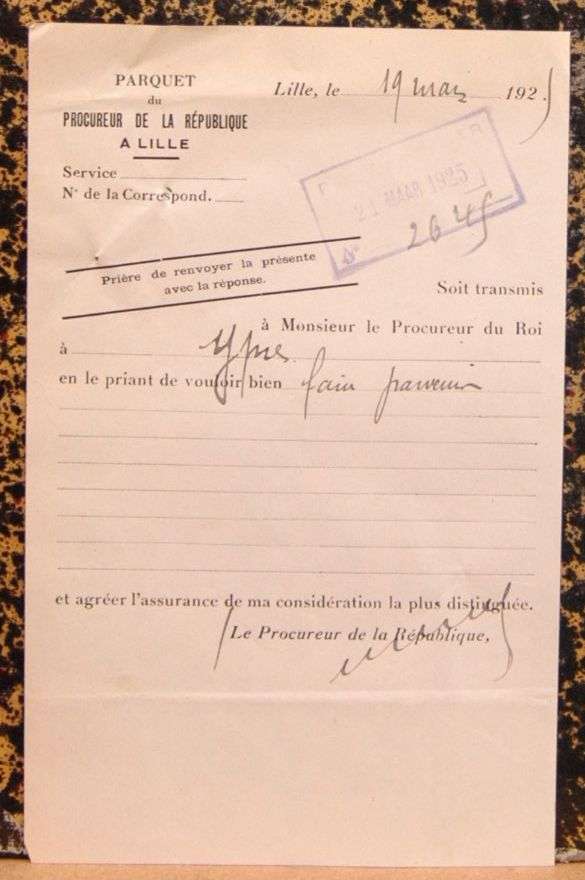 PARQUET
du
PROCUREUR DE LA RÉPUBLIQUE
A LILLE
Service
Nº de la Correspond.
Lille, le 19 mars 1925
21 MAAR 1925
2645
Prière de renvoyer la présente
avec la réponse.
Soit transmis
à Monsieur le Procureur du Roi
à Ypres
en le priant de vouloir bien faire parvenir
et agréer l'assurance de ma considération la plus distinguée.
Le Procureur de la République,